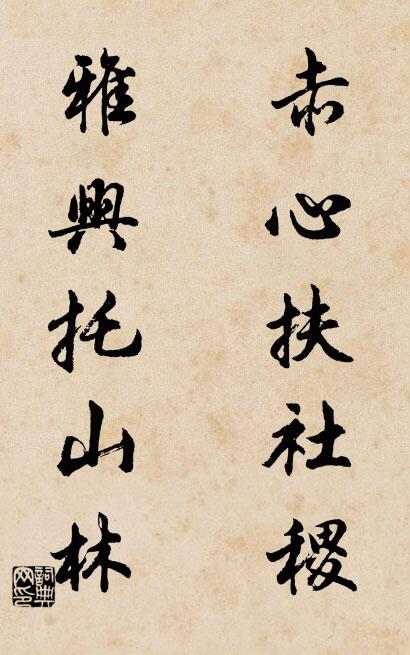 赤心扶社稷
雅興托山林
詞典網印